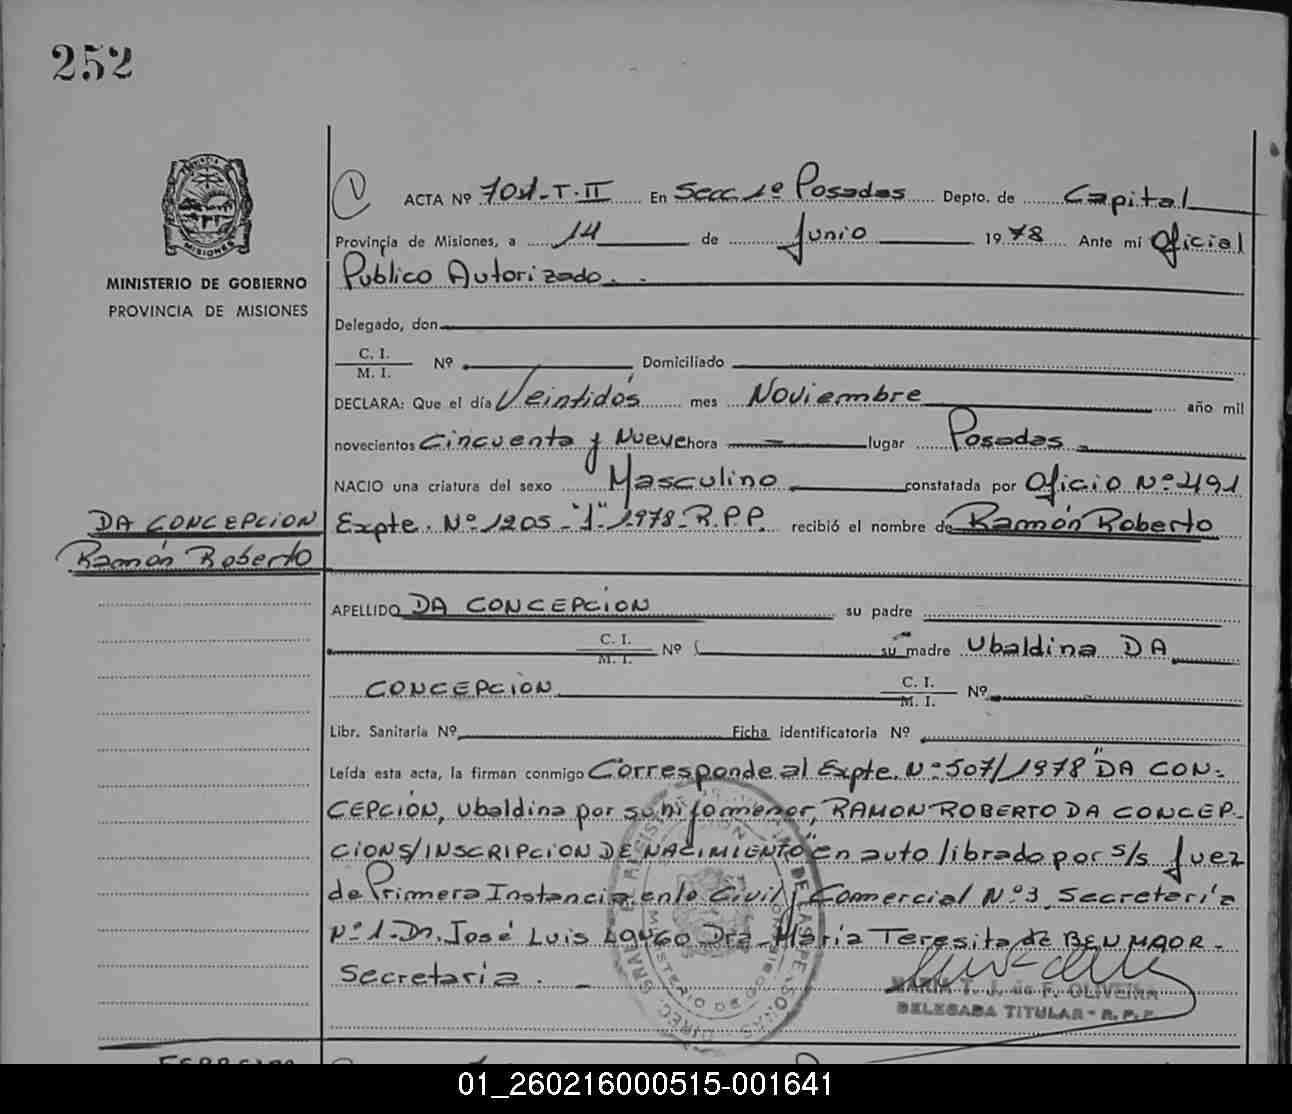 252
MINISTERIO DE GOBIERNO
PROVINCIA DE MISIONES
ACTA Nº 701-T-II En Secc. 1º Posadas Depto. de Capital
Provincia de Misiones, a 14 de Junio 1978 Ante mi Oficial
Público Autorizado.
Delegado, don
C. I.
M. I. Nº Domiciliado
DECLARA: Que el día Veintidós mes Noviembre año mil
novecientos Cincuenta y Nueve hora lugar Posadas
NACIO una criatura del sexo Masculino constatada por Oficio Nº 491
DA CONCEPCION
Expte. Nº 1205-"1"-1978-R.P.P. recibió el nombre de Ramón Roberto
Ramón Roberto
APELLIDO DA CONCEPCION su padre
C. I.
M. I. Nº su madre Ubaldina DA
CONCEPCION C. I.
M. I. Nº
Libr. Sanitaria Nº Ficha identificatoria Nº
Leída esta acta, la firman conmigo Corresponde al Expte. Nº 507/1978 "DA CON-
CEPCIÓN, Ubaldina por su hijo menor, RAMON ROBERTO DA CONCEP-
CION S/INSCRIPCION DE NACIMIENTO" en auto librado por s/s Juez
de Primera Instancia en lo Civil y Comercial Nº 3, Secretaría
Nº 1-Dr. José Luis Dra. María Teresita de BENMAOR-
Secretaria.
MARIA T. J. de F. OLIVEIRA
DELEGADA TITULAR - R. P. P.
01_260216000515-001641